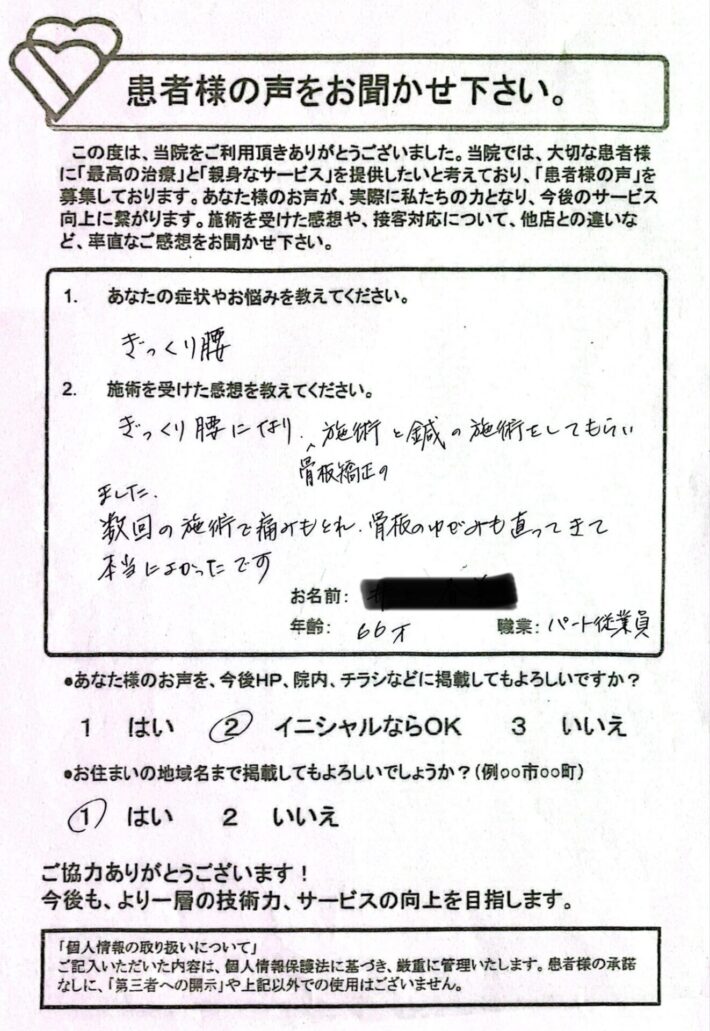 患者様の声をお聞かせ下さい。
この度は、当院をご利用頂きありがとうございました。当院では、大切な患者様
に「最高の治療」と「親身なサービス」を提供したいと考えており、「患者様の声」を
募集しております。あなた様のお声が、実際に私たちの力となり、今後のサービス
向上に繋がります。施術を受けた感想や、接客対応について、他店との違いな
ど、率直なご感想をお聞かせ下さい。
1. あなたの症状やお悩みを教えてください。
ぎっくり腰
2. 施術を受けた感想を教えてください。
ぎっくり腰になり、施術と鍼の施術をしてもらい
骨板矯正の
ました。
数回の施術で痛みもとれ、骨板のゆがみも直ってきて
本当によかったです
お名前:
年齢: 66才 職業: パート従業員
●あなた様のお声を、今後HP、院内、チラシなどに掲載してもよろしいですか？
1 はい 2 イニシャルならOK 3 いいえ
●お住まいの地域名まで掲載してもよろしいでしょうか？(例○○市○○町)
1 はい 2 いいえ
ご協力ありがとうございます！
今後も、より一層の技術力、サービスの向上を目指します。
「個人情報の取り扱いについて」
ご記入いただいた内容は、個人情報保護法に基づき、厳重に管理いたします。患者様の承諾
なしに、「第三者への開示」や上記以外での使用はございません。